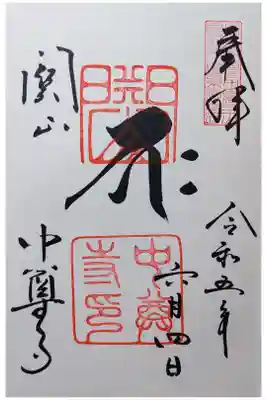 奉拝
令和五年
六月四日
関山
中尊寺
中尊寺印